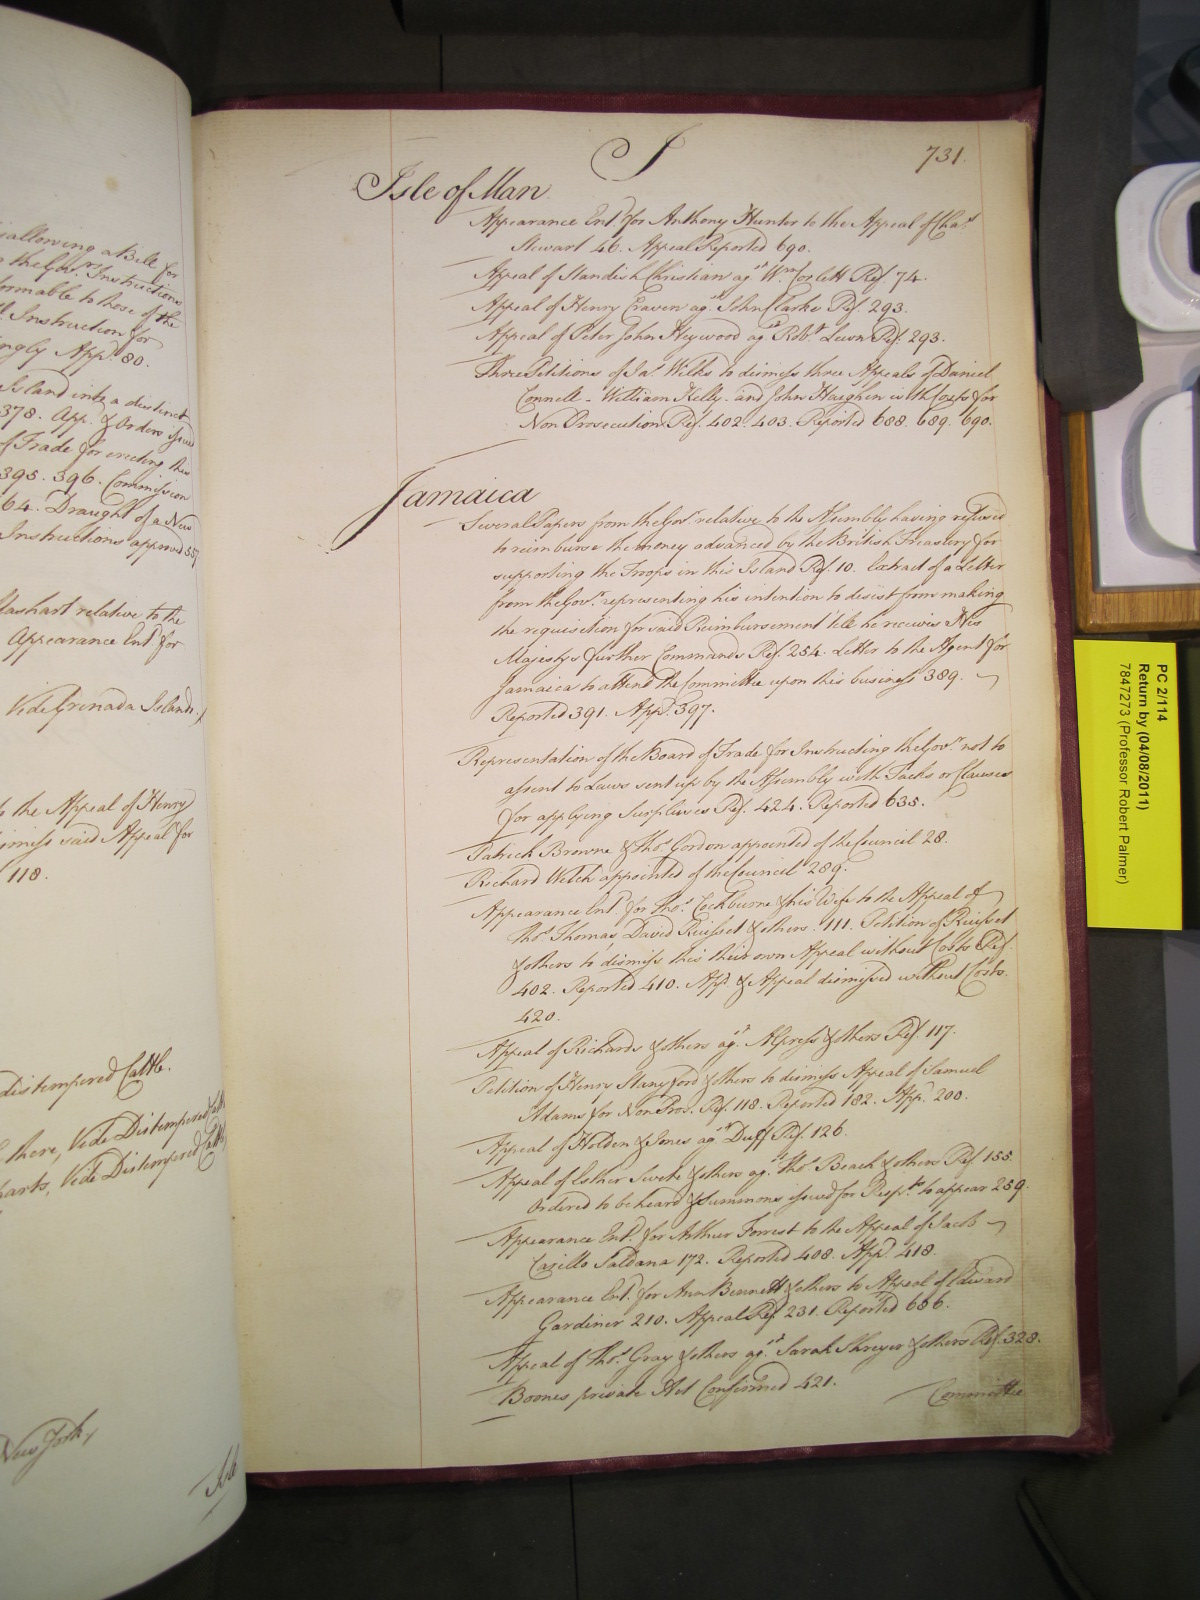 isallowing a Bill for
the Govr. Instructions
formable to those of the
Instruction for
ngly Appd. 80.
Island into a distinct
378. App. & Orders issued
of Trade for erecting this
395. 396. Commission
64. Draught of a New
Instructions approved 557
relative to the
Appearance Entd. for
Vide Grenada Islands
to the Appeal of Henry
dismiss said Appeal for
118.
distempered Cattle.
there, Vide Distempered Cattle
parts, Vide Distempered Cattle
New York
Isle
I
731.
Isle of Man
Appearance Entd. for Anthony Hunter to the Appeal of Chas.
Stewart 46. Appeal Reported 690.
Appeal of Standish Christian agst. Wm. Corlett Ref. 74.
Appeal of Henry Craven agst. John Clarke Ref. 293.
Appeal of Peter John Heywood agst. Robt. Lewn Ref. 293.
Three Petitions of Jas. Wilks to dismiss three Appeals of Daniel
Connell - William Kelly - and John Haughin with Costs for
Non Prosecution Ref. 402. 403. Reported 688. 689. 690.
Jamaica
Several Papers from the Govr. relative to the Assembly having refused
to reimburse the money advanced by the British Treasury for
supporting the Troops in this Island Ref. 10. Extract of a Letter
from the Govr. representing his intention to desist from making
the requisition for said Reimbursement 'till he receives His
Majestys further Commands Ref. 254. Letter to the Agent for
Jamaica to attend the Committee upon this business 389.
Reported 391. Appd. 397.
Representation of the Board of Trade for Instructing the Govr. not to
assent to Laws sent up by the Assembly with Tacks or Clauses
for applying Surplusses Ref. 424. Reported 635.
Patrick Browne & Thos. Gordon appointed of the Council 28.
Richard Welch appointed of the Council 289.
Appearance Entd. for Thos. Cockburne & his Wife to the Appeal of
Thos. Thomas, David Ruisset & others. 111. Petition of Ruisset
& others to dismiss this their own Appeal without Costs Ref.
402. Reported 410. Appd. & Appeal dismissed without Costs.
420.
Appeal of Richards & others agst. Allpress & others Ref. 117.
Petition of Henry Stanyford & others to dismiss Appeal of Samuel
Adams for Non Pros. Ref. 118. Reported 182. App. 200.
Appeal of Holden & Jones agst. Duff Ref. 126.
Appeal of Esther Swete & others agst. Thos. Beach & others Ref. 155.
Ordered to be heard & Summons issued for Respts. to appear 259.
Appearance Entd. for Arthur Forrest to the Appeal of Jacob
Casillo Saldana 172. Reported 408. Appd. 418.
Appearance Entd. for Ann Bennett & others to Appeal of Edward
Gardiner 210. Appeal Ref. 231. Reported 686.
Appeal of Thos. Gray & others agst. Sarah Shreyer & others Ref. 328.
Boones private Act Confirmed 421.
Committee
PC 2/114
Return by (04/08/2011)
7847273 (Professor Robert Palmer)